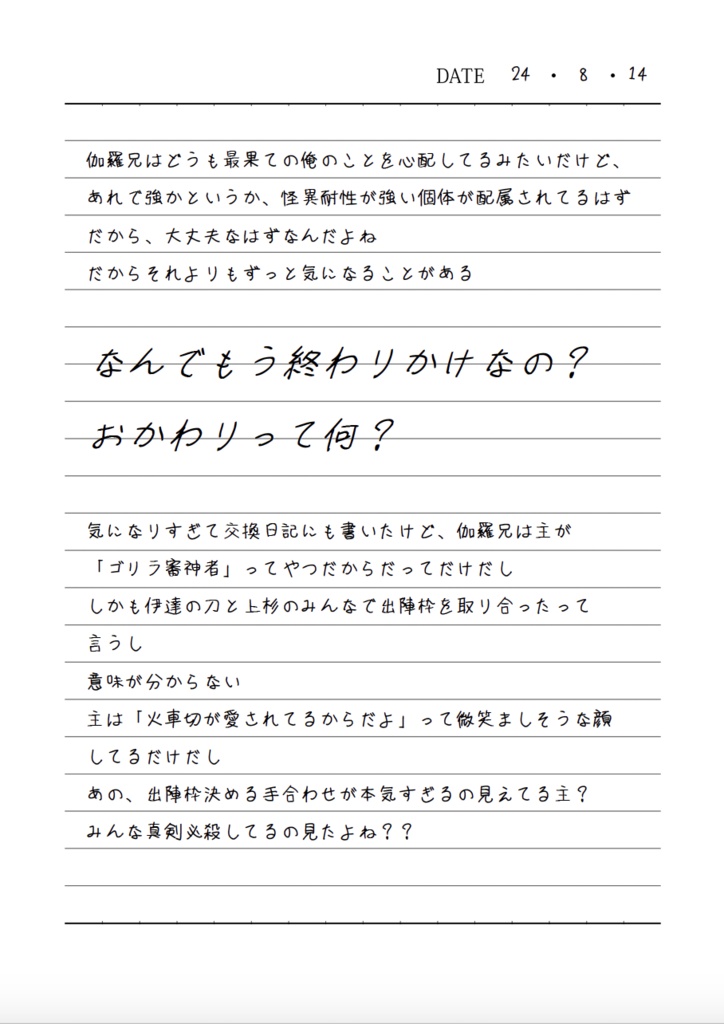 DATE 24・8・14
伽羅兄はどうも最果ての俺のことを心配してるみたいだけど、
あれで強かというか、怪異耐性が強い個体が配属されてるはず
だから、大丈夫なはずなんだよね
だからそれよりもずっと気になることがある
なんでもう終わりかけなの？
おかわりって何？
気になりすぎて交換日記にも書いたけど、伽羅兄は主が
「ゴリラ審神者」ってやつだからだってだけだし
しかも伊達の刀と上杉のみんなで出陣枠を取り合ったって
言うし
意味が分からない
主は「火車切が愛されてるからだよ」って微笑ましそうな顔
してるだけだし
あの、出陣枠決める手合わせが本気すぎるの見えてる主？
みんな真剣必殺してるの見たよね？？